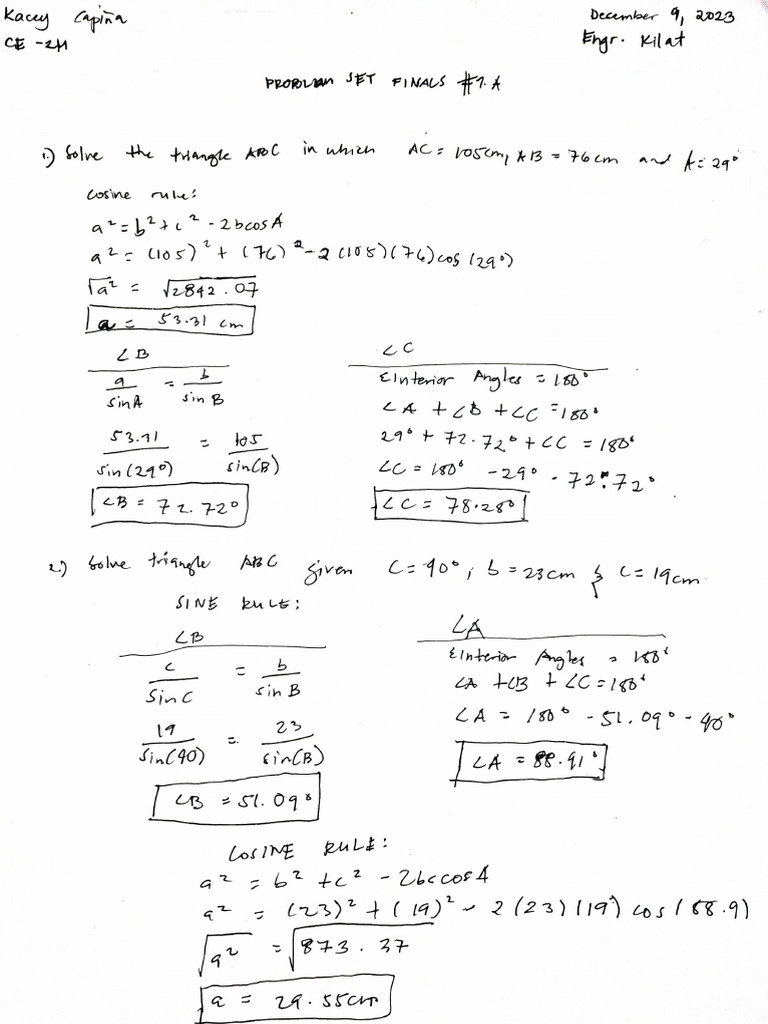 Kacey Capiña
December 9, 2023
CE - 2H
Engr. Kilat
PROBLEM SET FINALS #1.A
1.) Solve the triangle ABC in which AC = 105cm, AB = 76cm and A = 29°
Cosine rule:
a² = b² + c² - 2bcosA
a² = (105)² + (76)² - 2(105)(76)cos(29°)
√a² = √2842.07
a = 53.31 cm
∠B
a/sinA = b/sin B
53.31/sin(29°) = 105/sin(B)
∠B = 72.72°
∠C
ΣInterior Angles = 180°
∠A + ∠B + ∠C = 180°
29° + 72.72° + ∠C = 180°
∠C = 180° - 29° - 72.72°
∠C = 78.28°
2.) Solve triangle ABC given C = 40°, b = 23cm & c = 19cm
SINE RULE:
∠B
c/Sin C = b/sin B
19/Sin(40) = 23/sin(B)
∠B = 51.09°
∠A
ΣInterior Angles = 180°
∠A + ∠B + ∠C = 180°
∠A = 180° - 51.09° - 40°
∠A = 88.91°
COSINE RULE:
a² = b² + c² - 2bccosA
a² = (23)² + (19)² - 2(23)(19) cos(88.9)
√a² = √873.37
a = 29.55cm